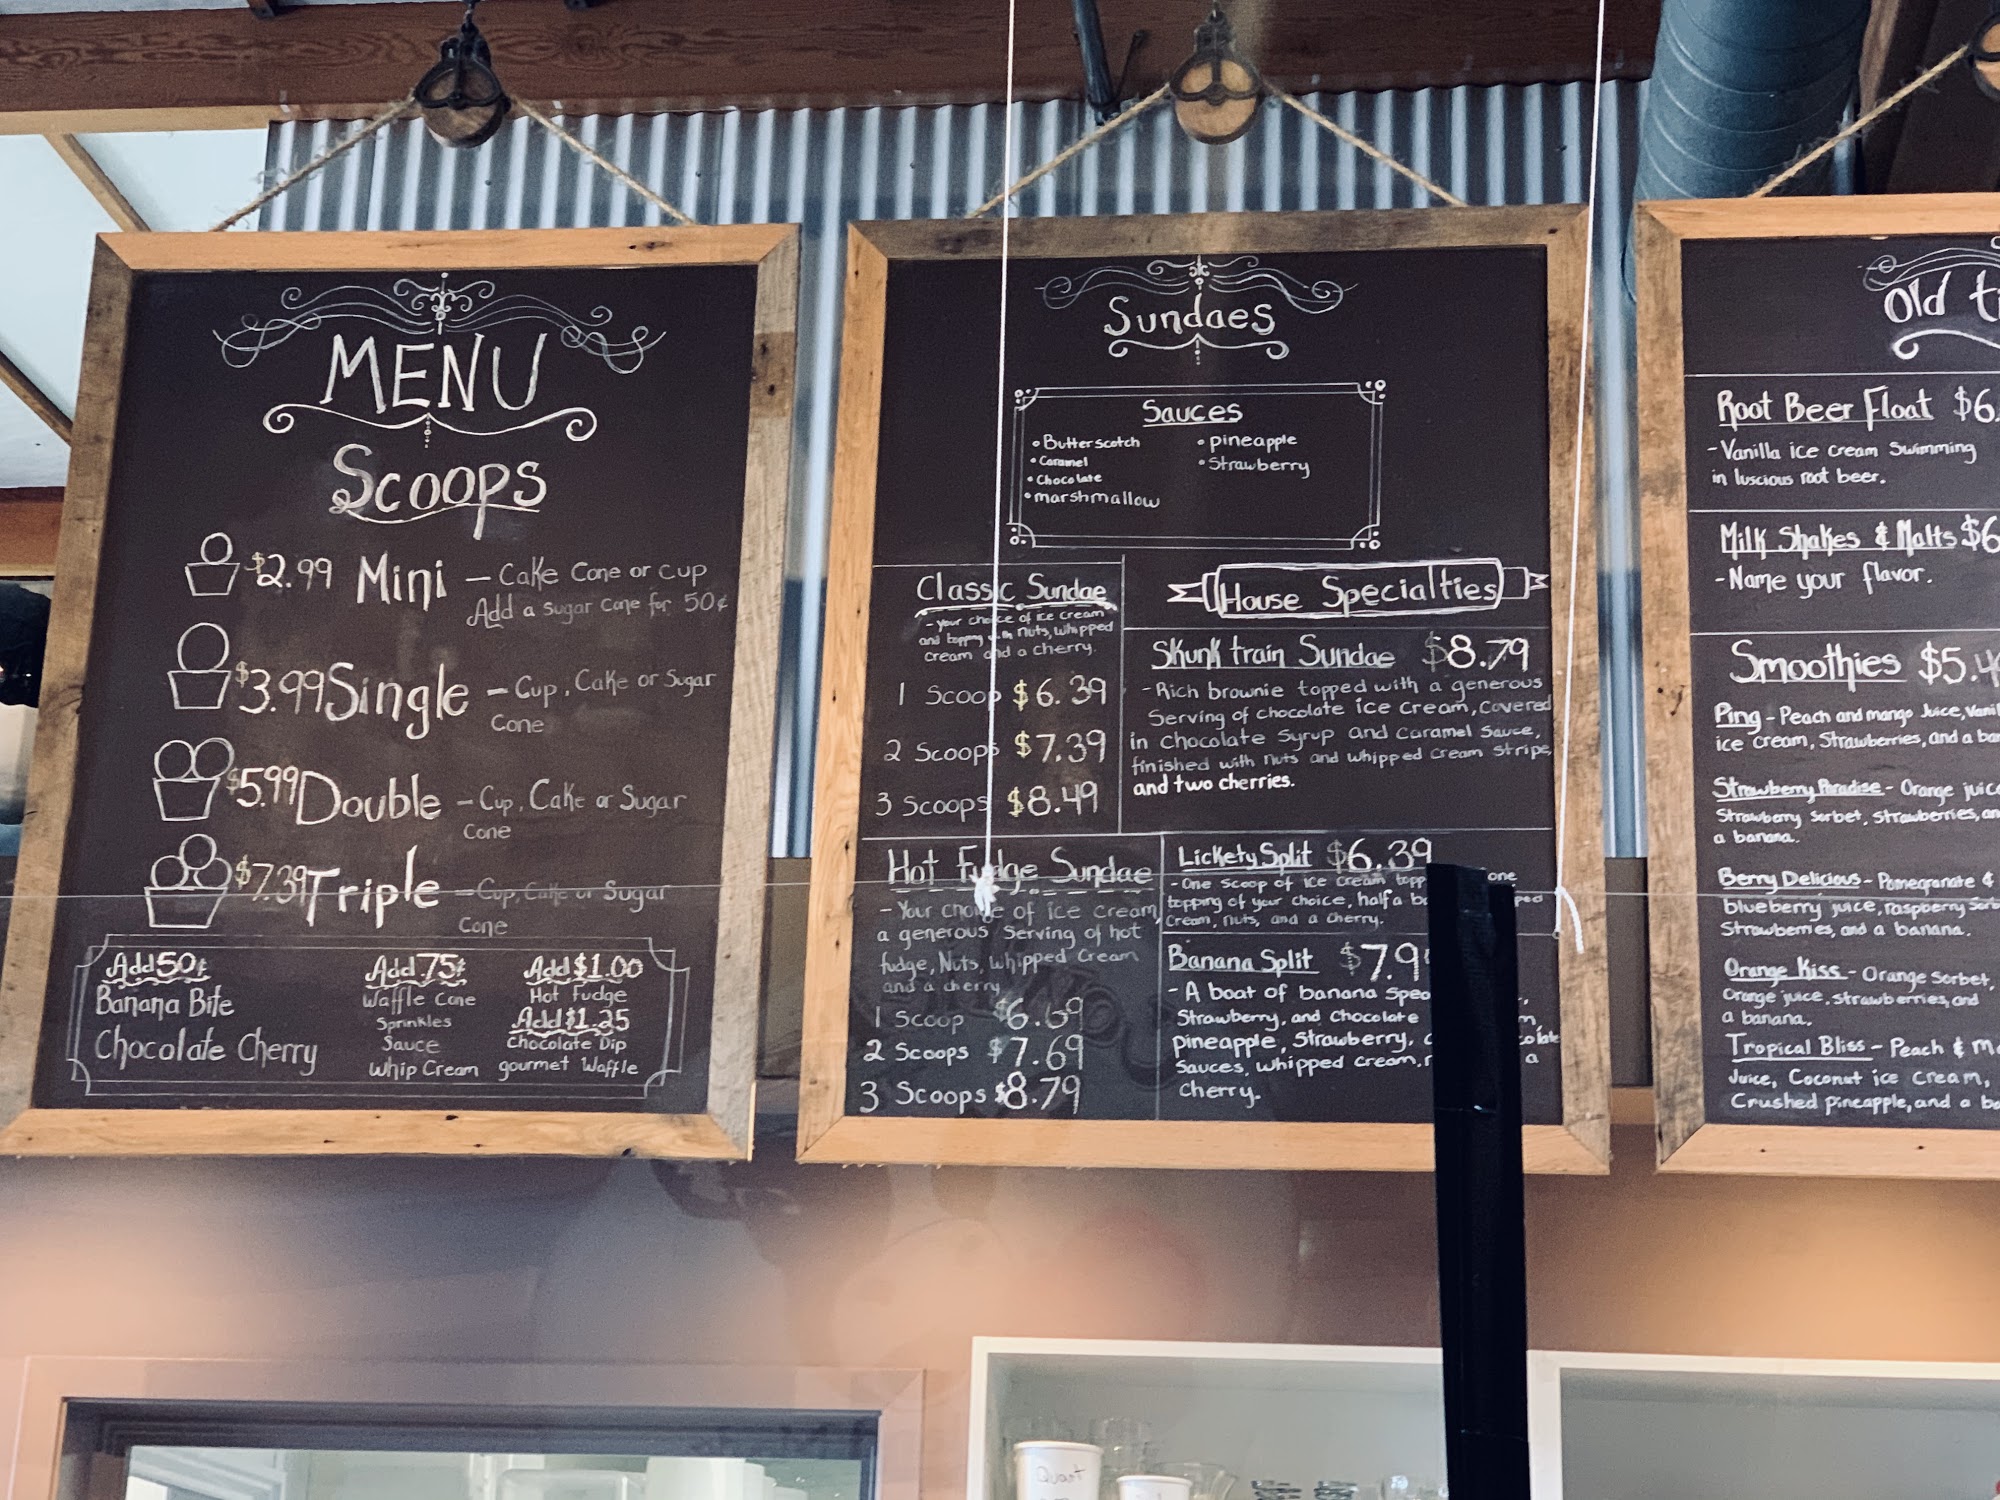 MENU
Scoops
$2.99 Mini - Cake Cone or cup
Add a sugar cone for 50¢
$3.99 Single - Cup, Cake or Sugar
Cone
$5.99 Double - Cup, Cake or Sugar
Cone
$7.39 Triple - Cup, Cake or Sugar
Cone
Add 50¢
Banana Bite
Chocolate Cherry
Add .75¢
Waffle Cone
Sprinkles
Sauce
Whip Cream
Add $1.00
Hot Fudge
Add $1.25
Chocolate Dip
gourmet Waffle
Sundaes
Sauces
• Butterscotch
• Caramel
• Chocolate
• marshmallow
• pineapple
• Strawberry
Classic Sundae
- your choice of ice cream
and topping with nuts, whipped
cream and a cherry.
1 Scoop $6.39
2 Scoops $7.39
3 Scoops $8.49
House Specialties
Skunk train Sundae $8.79
- Rich brownie topped with a generous
Serving of chocolate ice cream, covered
in chocolate syrup and caramel sauce,
finished with nuts and whipped cream stripe,
and two cherries.
Hot Fudge Sundae
- Your choice of ice cream,
a generous Serving of hot
fudge, Nuts, whipped cream
and a cherry
1 Scoop $6.69
2 Scoops $7.69
3 Scoops $8.79
Lickety Split $6.39
- One scoop of ice cream one
topping of your choice, half a
cream, nuts, and a cherry.
Banana Split $7.9
- A boat of banana
Strawberry, and chocolate
pineapple, strawberry,
Sauces, whipped cream, a
cherry.
Old
Root Beer Float $6.
- Vanilla ice cream swimming
in luscious root beer.
Milk Shakes & Malts $6
- Name your flavor.
Smoothies $5.4
Ping - Peach and mango Juice,
ice cream, Strawberries, and a
Strawberry Paradise - Orange juice
Strawberry Sorbet, strawberries,
a banana.
Berry Delicious - Pomegranate &
blueberry juice, raspberry
Strawberries, and a banana.
Orange Kiss - Orange sorbet,
Orange juice, strawberries, and
a banana.
Tropical Bliss - Peach &
Juice, Coconut ice cream,
Crushed pineapple, and a
Quart